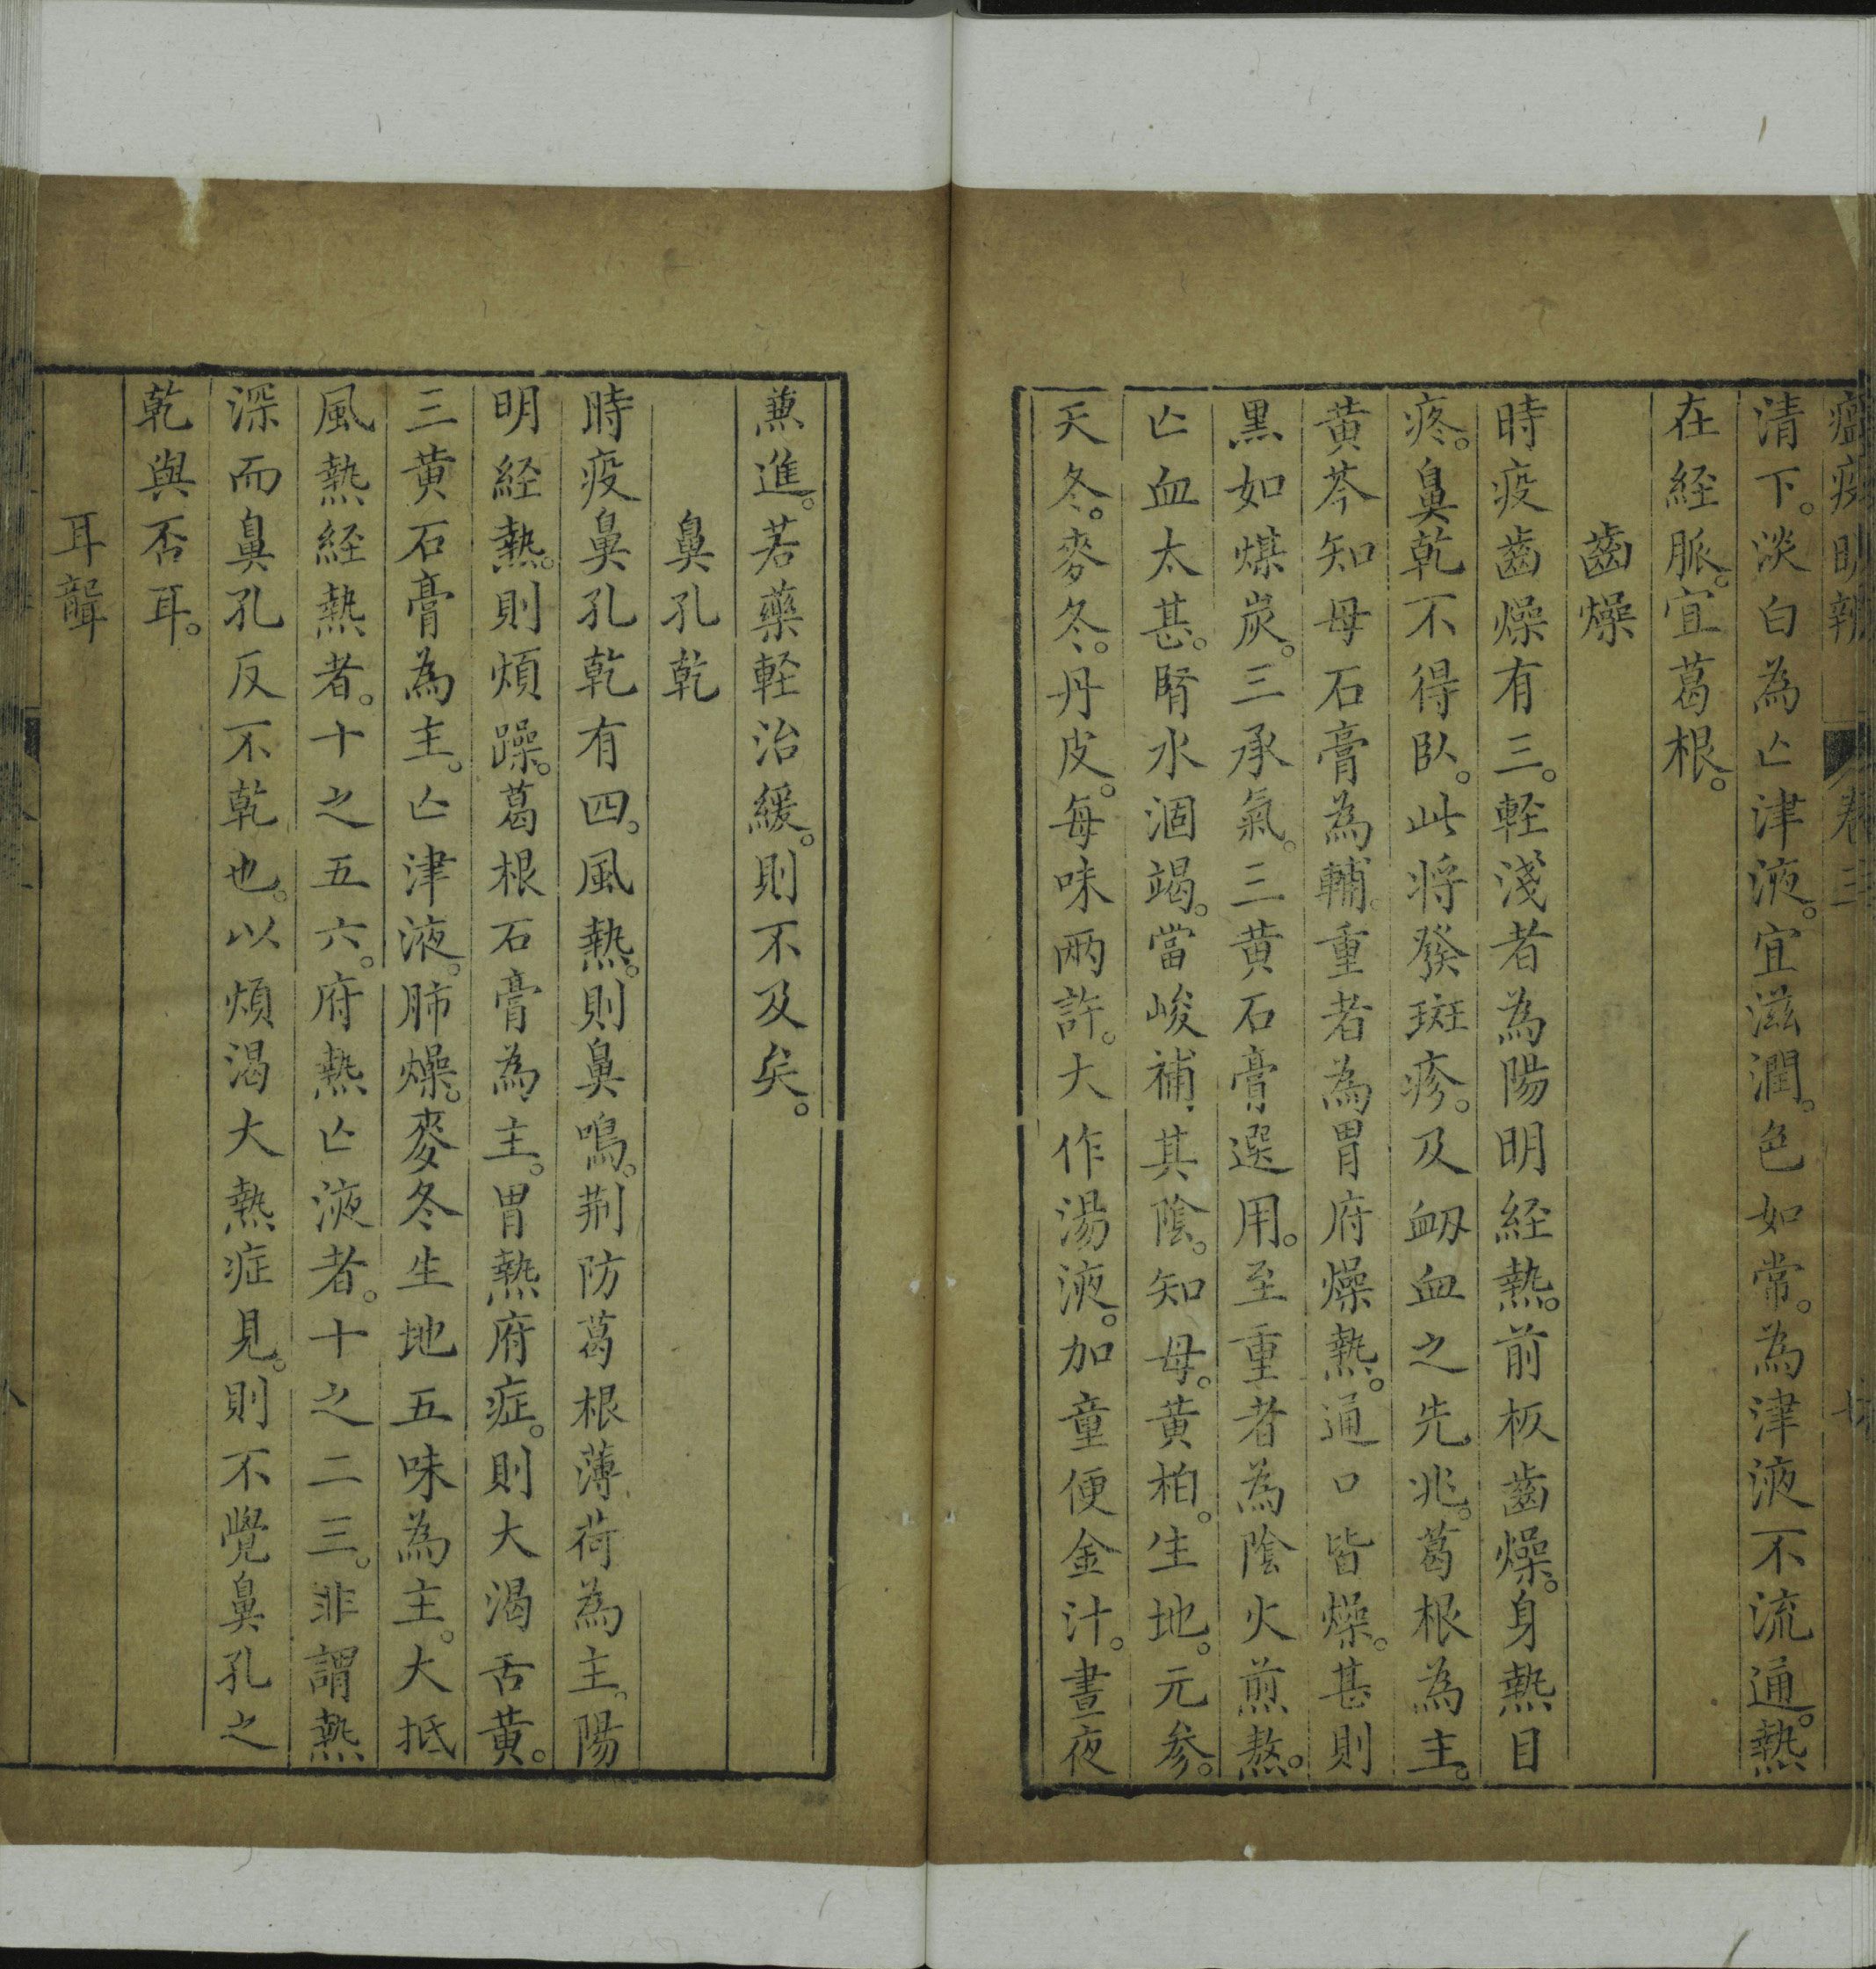 瘟疫明辨　卷三
清下。淡白為亡津液。宜滋潤。色如常。為津液不流通。熱
在経脈。宜葛根。
齒燥
時疫齒燥有三。軽淺者為陽明経熱。前板齒燥。身熱目
疼。鼻乾不得臥。此将發斑疹。及衂血之先兆。葛根為主。
黄芩知母石膏為輔。重者為胃府燥熱。通口皆燥。甚則
黒如煤炭。三承氣。三黄石膏選用。至重者為陰火煎熬。
亡血太甚。腎水涸竭。當峻補其陰。知母。黄柏。生地。元参。
天冬。麥冬。丹皮。每味兩許。大作湯液。加童便金汁。晝夜
兼進。若藥軽治緩。則不及矣。
鼻孔乾
時疫鼻孔乾有四。風熱。則鼻鳴。荆防葛根薄荷為主。陽
明経熱。則煩躁。葛根石膏為主。胃熱府症。則大渴舌黄。
三黄石膏為主。亡津液。肺燥。麥冬生地五味為主。大抵
風熱経熱者。十之五六。府熱亡液者。十之二三。非謂熱
深而鼻孔反不乾也。以煩渴大熱症見。則不覺鼻孔之
乾與否耳。
耳聾